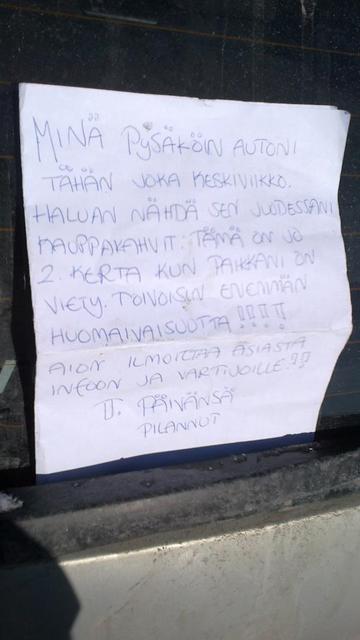 MINÄ PYSÄKÖIN AUTONI
TÄHÄN JOKA KESKIVIIKKO.
HALUAN NÄHDÄ SEN JUODESSANI
KAUPPAKAHVIT. TÄMÄ ON JO
2. KERTA KUN PAIKKANI ON
VIETY. TOIVOISIN ENEMMÄN
HUOMAIVAISUUTTA !!!!
AION ILMOITTAA ASIASTA
INFOON JA VARTIJOILLE.!!
T. PÄIVÄNSÄ
PILANNUT